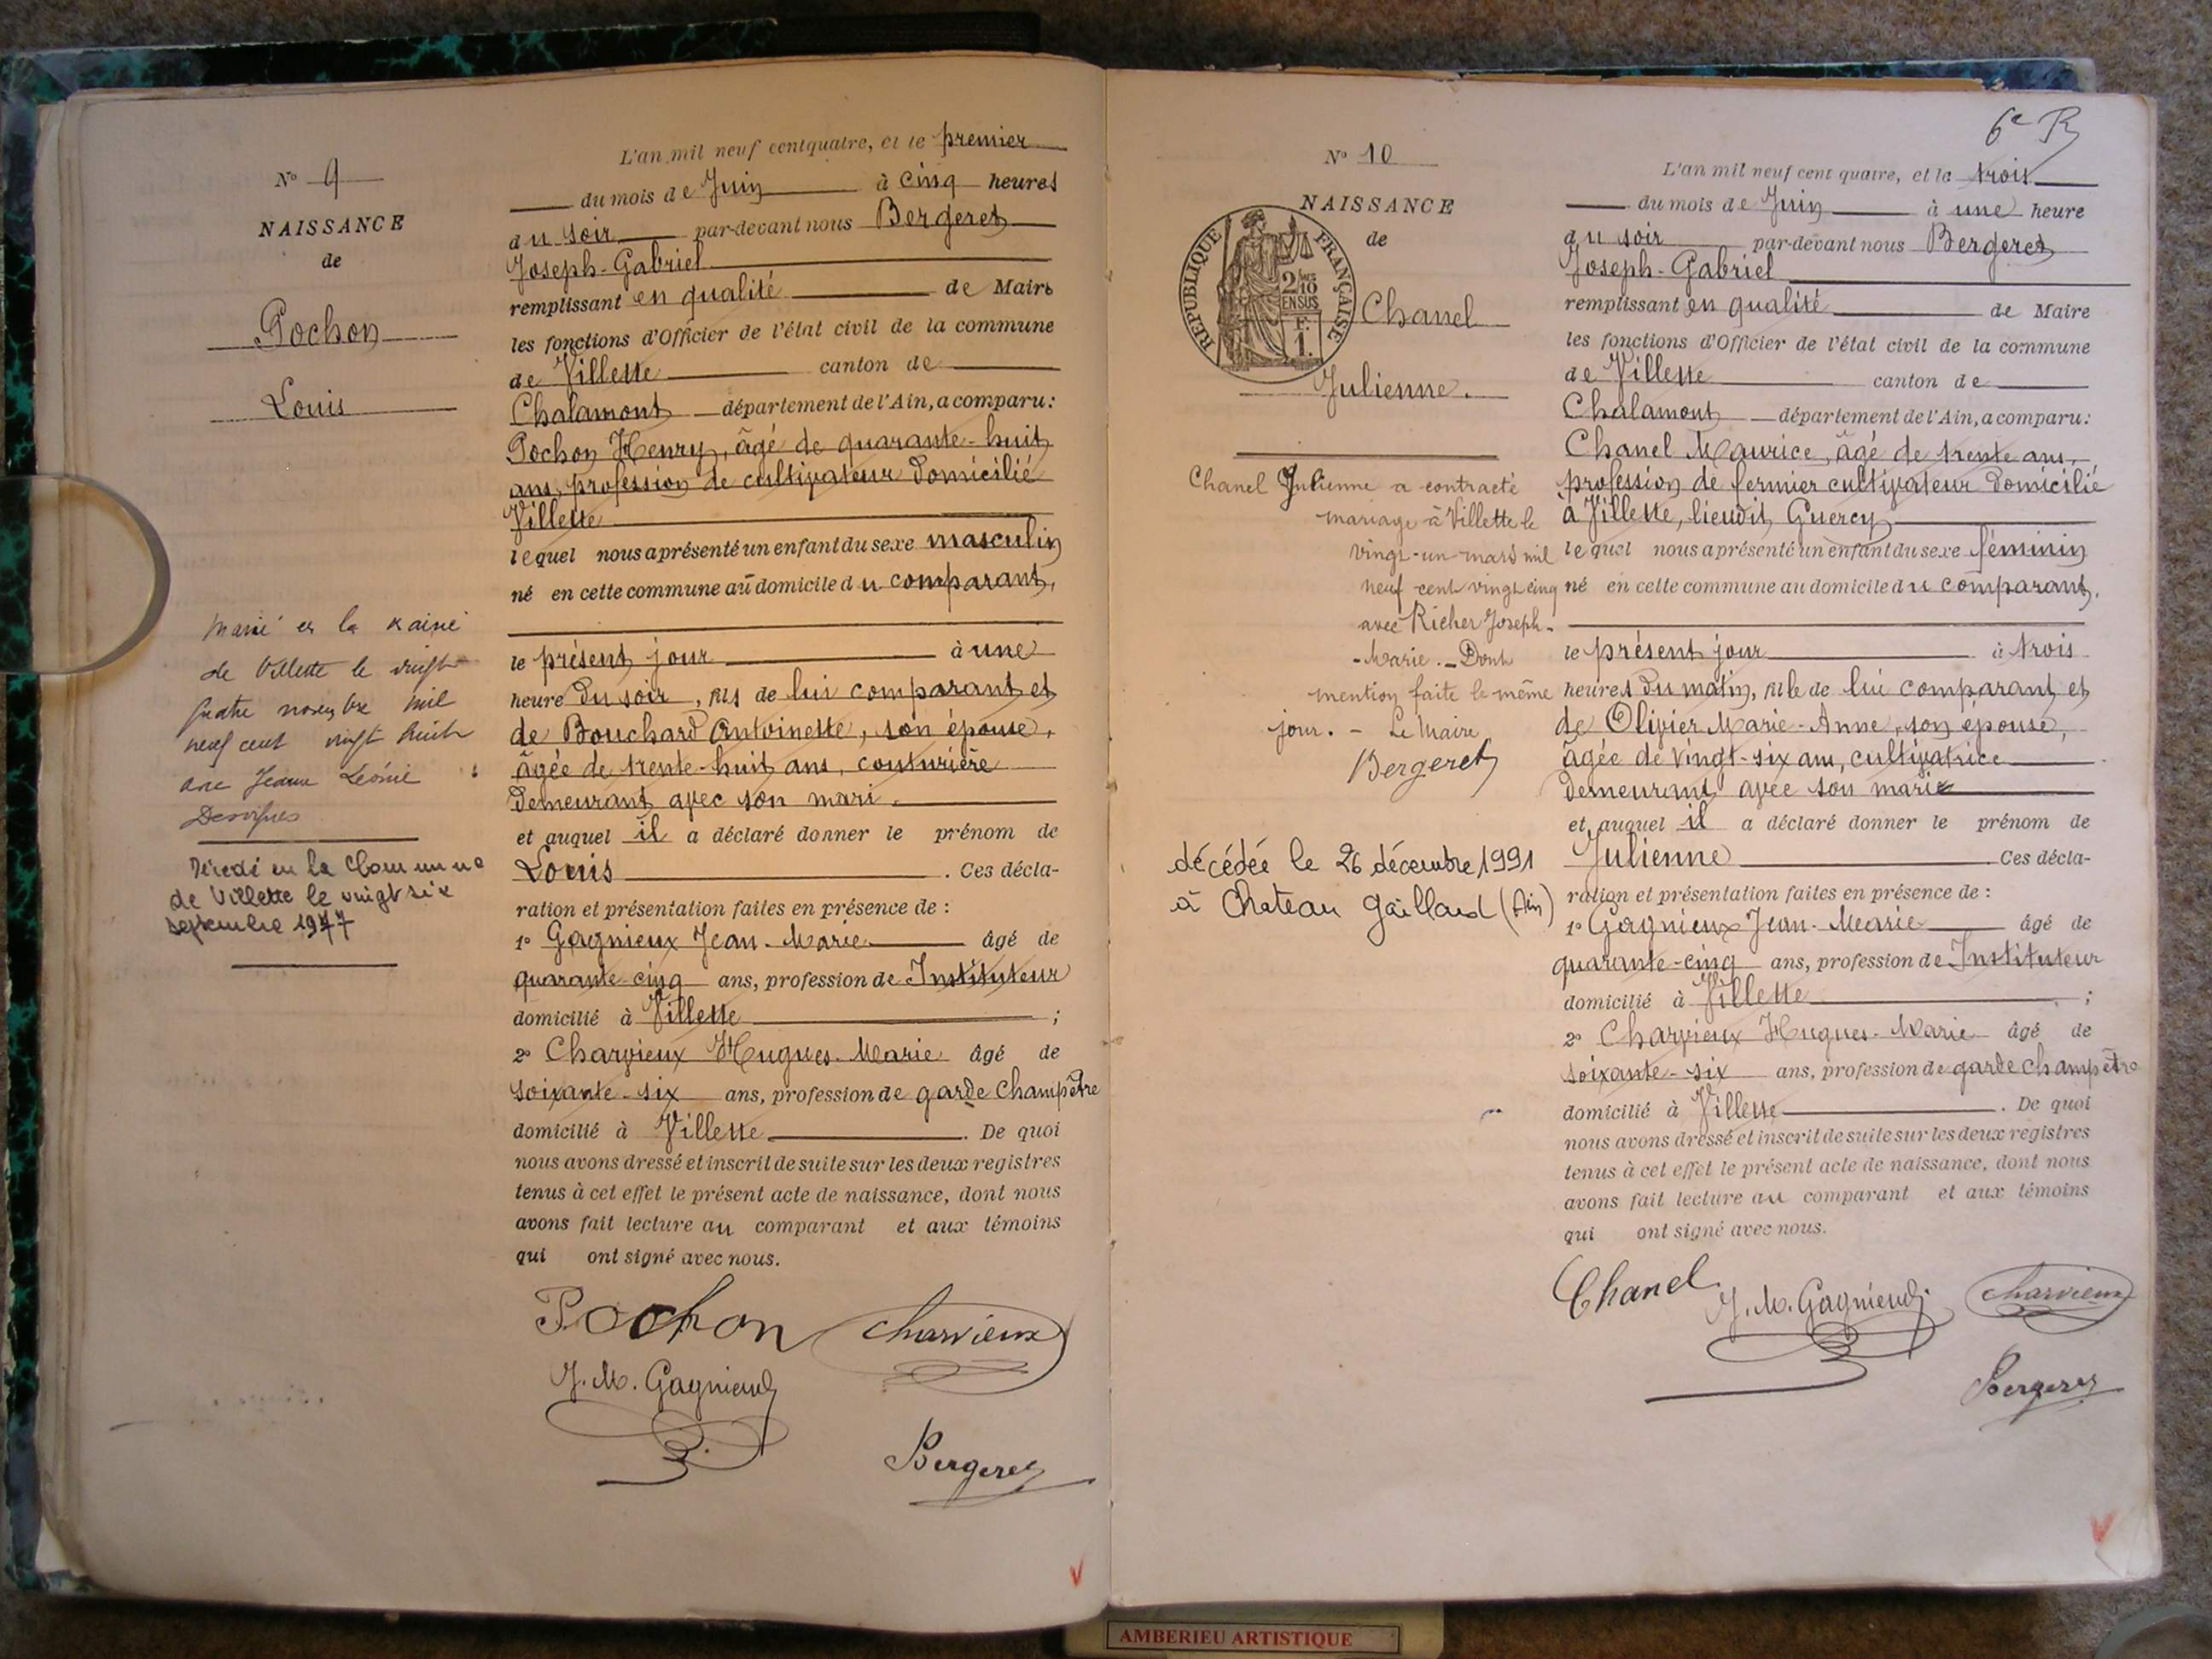 N° 9
NAISSANCE
de
Pochon
Louis
Marié en la Mairie
de Villette le vingt
quatre novembre mil
neuf cent vingt huit
avec Jeanne Léonie
Décédé en la Commune
de Villette le vingt six
septembre 1977
L'an mil neuf cent quatre, et le premier
du mois de Juin à cinq heures
du soir par-devant nous Bergeret
Joseph-Gabriel
remplissant en qualité de Maire
les fonctions d'Officier de l'état civil de la commune
de Villette canton de
Chalamont département de l'Ain, a comparu:
Pochon Henry, âgé de quarante-huit
ans, profession de cultivateur domicilié
Villette
lequel nous a présenté un enfant du sexe masculin
né en cette commune au domicile du comparant,
le présent jour à une
heure du soir, fils de lui comparant et
de Bouchard Antoinette, son épouse,
âgée de trente-huit ans, couturière
demeurant avec son mari.
et auquel il a déclaré donner le prénom de
Louis . Ces décla-
ration et présentation faites en présence de :
1° Gagnieux Jean-Marie âgé de
quarante-cinq ans, profession de Instituteur
domicilié à Villette ;
2° Charvieux Hugues-Marie âgé de
soixante-six ans, profession de garde champêtre
domicilié à Villette . De quoi
nous avons dressé et inscrit de suite sur les deux registres
tenus à cet effet le présent acte de naissance, dont nous
avons fait lecture au comparant et aux témoins
qui ont signé avec nous.
Pochon Charvieux
J. M. Gagnieux
Bergeret
N° 10
NAISSANCE
de
REPUBLIQUE FRANÇAISE
2/10
EN SUS
F.
1.
Chanel
Julienne.
Chanel Julienne a contracté
mariage à Villette le
vingt-un mars mil
neuf cent vingt cinq
avec Richer Joseph-
-Marie. - Dont
mention faite le même
jour. - Le Maire
Bergeret
décédée le 26 décembre 1991
à Chateau Gaillard (Ain)
6e
L'an mil neuf cent quatre, et le trois
du mois de Juin à une heure
du soir par-devant nous Bergeret
Joseph-Gabriel
remplissant en qualité de Maire
les fonctions d'Officier de l'état civil de la commune
de Villette canton de
Chalamont département de l'Ain, a comparu:
Chanel Maurice, âgé de trente ans,
profession de fermier cultivateur domicilié
à Villette, lieudit Guercy
lequel nous a présenté un enfant du sexe féminin
né en cette commune au domicile du comparant,
le présent jour à trois
heures du matin, fille de lui comparant et
de Olivier Marie-Anne, son épouse,
âgée de vingt-six ans, cultivatrice
demeurant avec son mari
et auquel il a déclaré donner le prénom de
Julienne . Ces décla-
ration et présentation faites en présence de :
1° Gagnieux Jean-Marie âgé de
quarante-cinq ans, profession de Instituteur
domicilié à Villette ;
2° Charvieux Hugues-Marie âgé de
soixante-six ans, profession de garde champêtre
domicilié à Villette . De quoi
nous avons dressé et inscrit de suite sur les deux registres
tenus à cet effet le présent acte de naissance, dont nous
avons fait lecture au comparant et aux témoins
qui ont signé avec nous.
Chanel J. M. Gagnieux Charvieux
Bergeret
AMBERIEU ARTISTIQUE